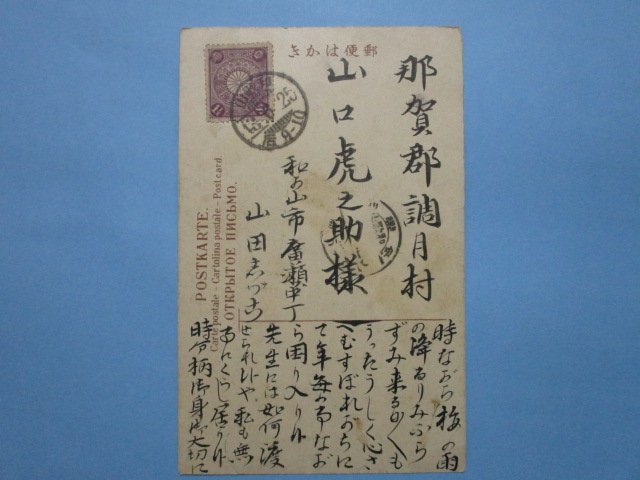 郵便はかき
那賀郡調月村
山口虎之助様
和歌山市廣瀬中丁
山田
POSTKARTE.
Carte postale - Cartolina postale - Post card.
ОТКРЫТОЕ ПИСЬМО.
時ながら梅の雨
の降
ずみ来る
うつたうしく心さ
へむすぼれがちに
て年毎の事なが
ら困り入り候
先生には如何渡
せられ候や私も無
事にくらし居り候
時分柄御身御大切に